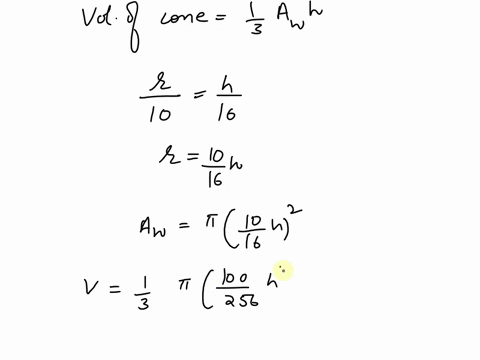 Vol. of cone = 1/3 A_w h
r/10 = h/16
r = 10/16 h
A_w = π (10/16 h)^2
V = 1/3 π (100/256 h